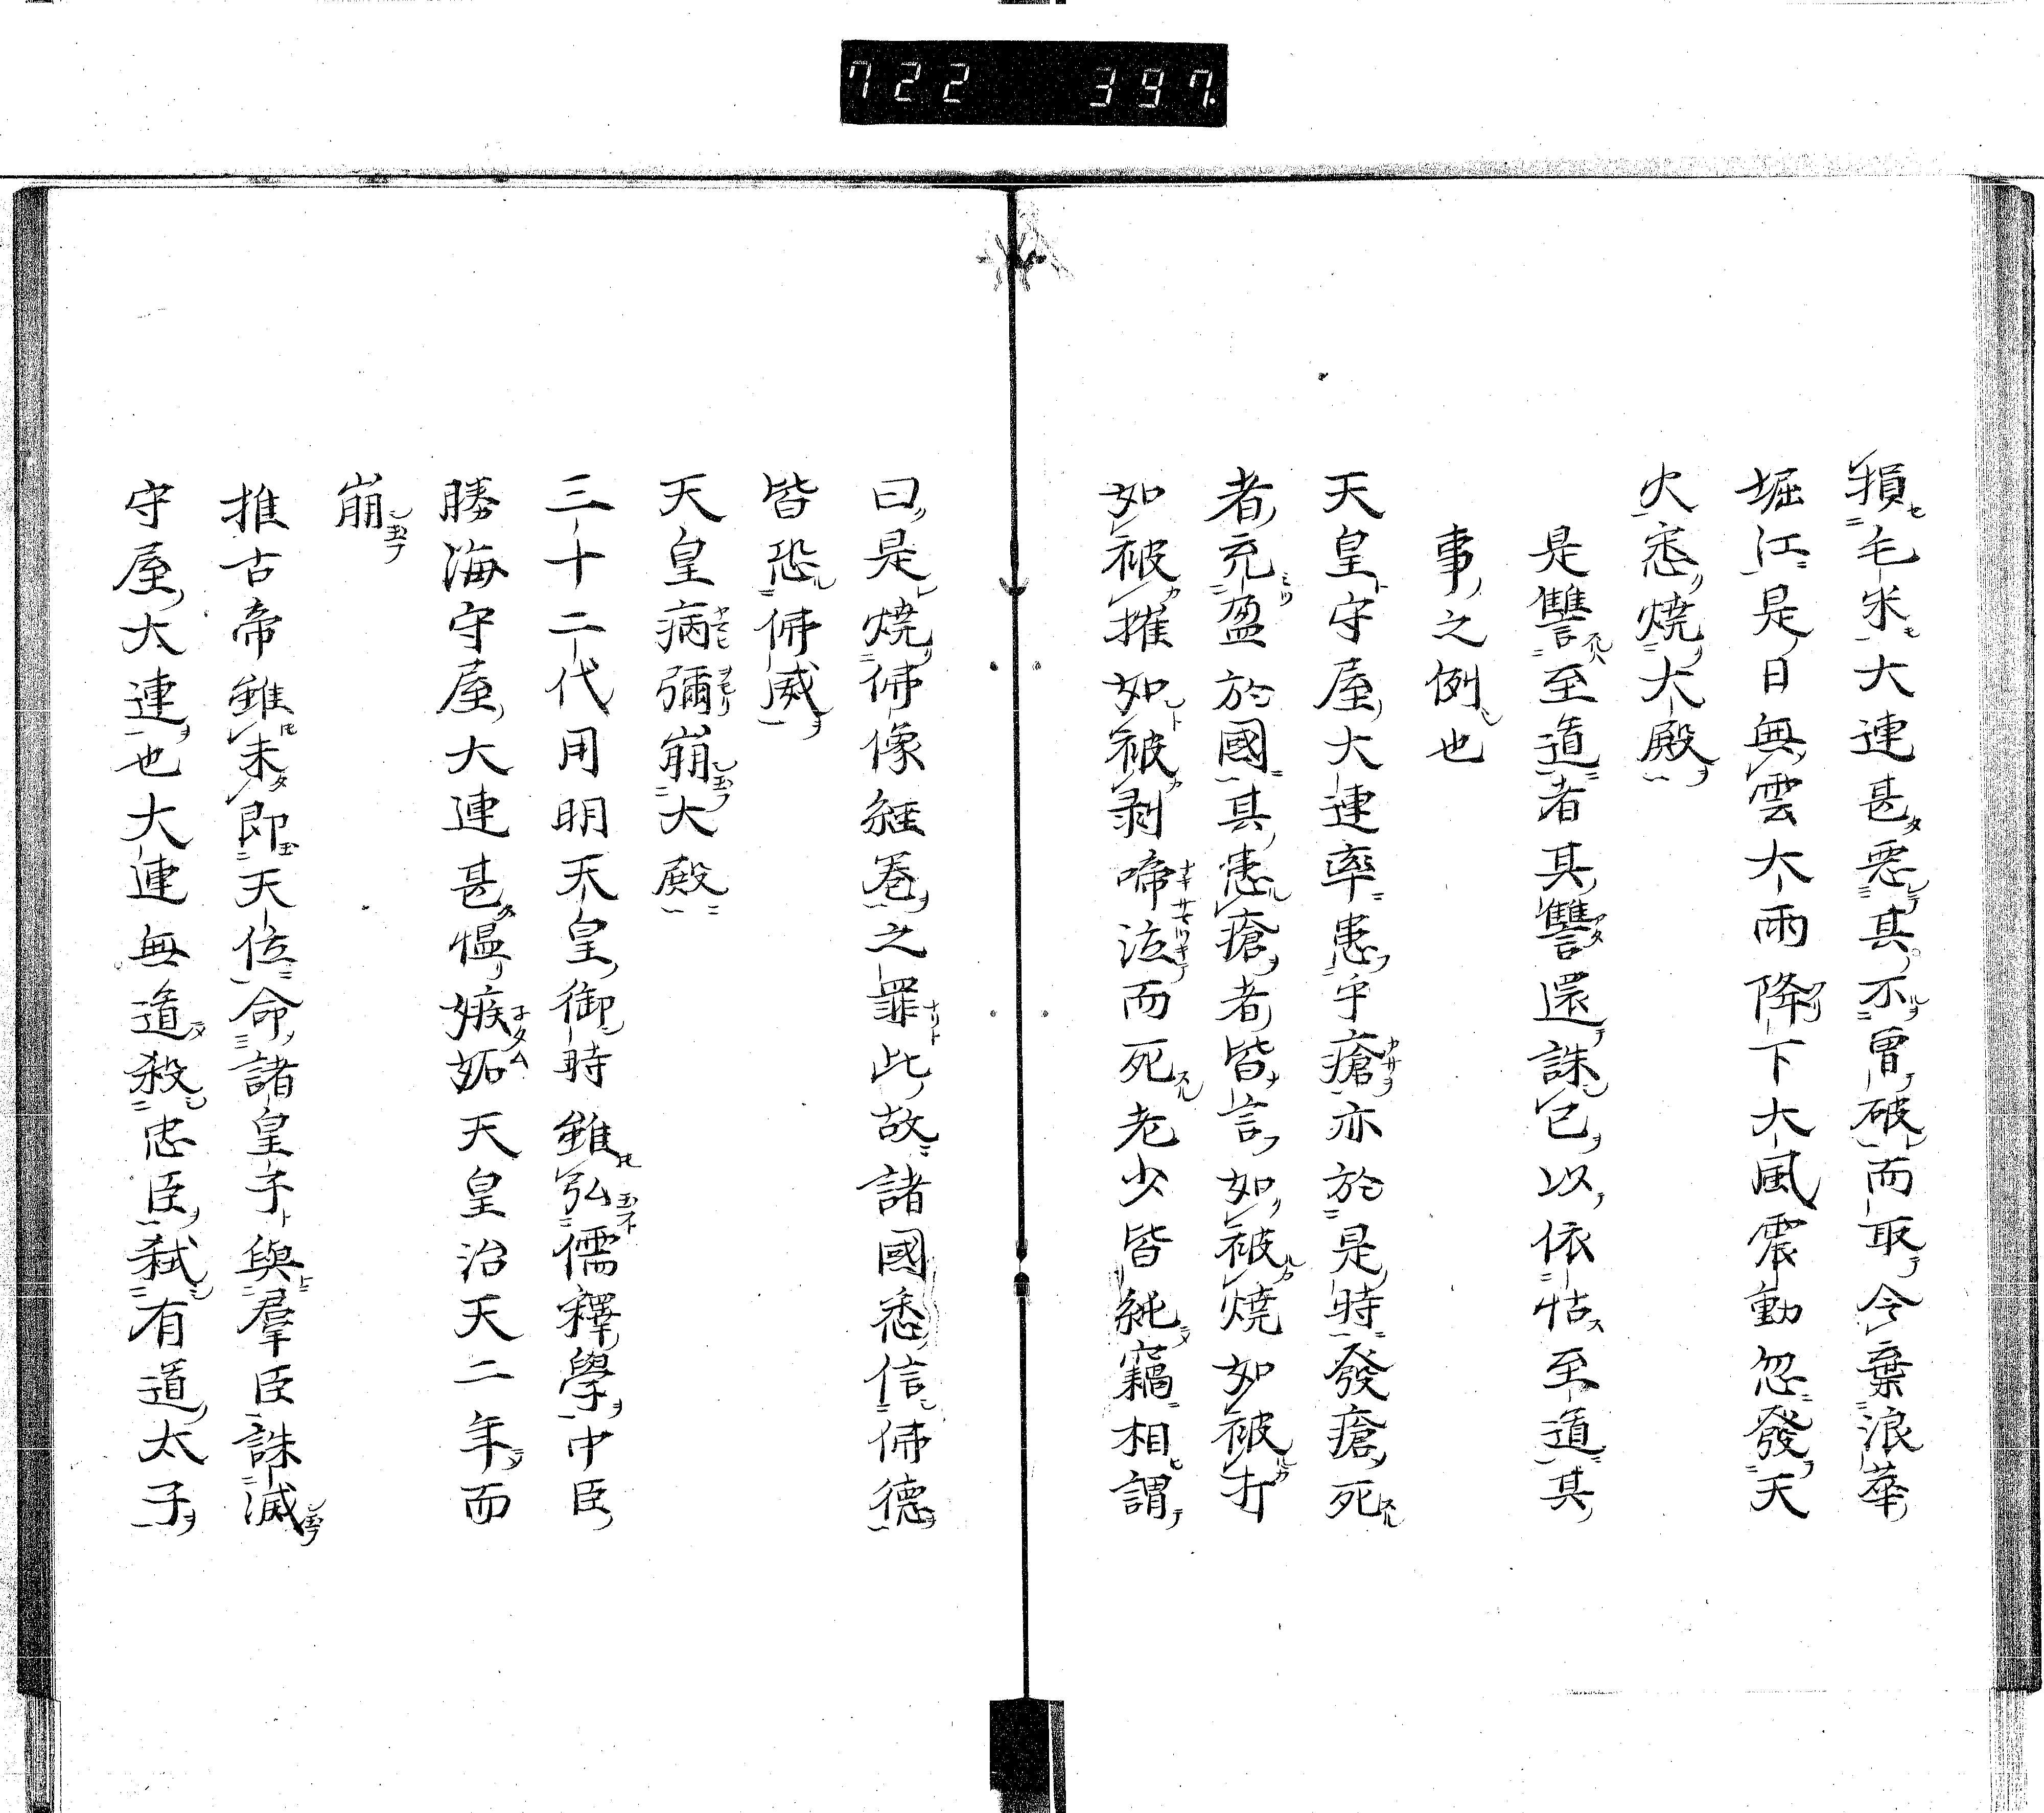 722 397.
損毛米大連甚惡其不曾破而取令棄浪華
堀江是日無雲大雨降下大風震動忽發天
火悉燒大殿
是讐至道者其讐還誅己以依怙至道其
事之例也
天皇守屋大連率患乎瘡亦於是時發瘡死
者充盈於國其患瘡者皆言如被燒如被打
如被摧如被剥啼泣而死老少皆純竊相謂
曰是燒佛像經卷之罪此故諸國悉信佛德
皆恐佛威
天皇病彌崩大殿
三十二代用明天皇御時雖弘儒釋學中臣
勝海守屋大連甚慍嫉妬天皇治天二年而
崩
推古帝雖未即天位命諸皇子與羣臣誅滅
守屋大連也大連無道殺忠臣弑有道太子